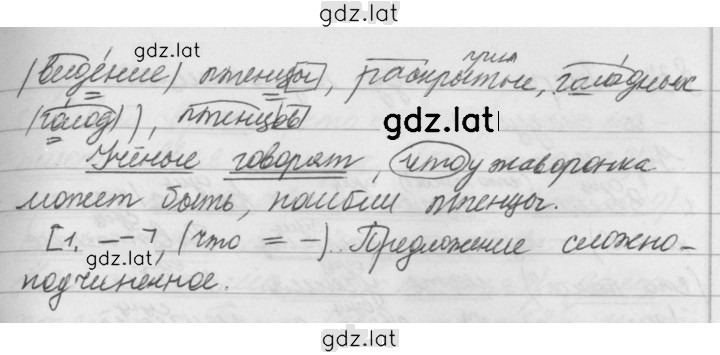 gdz.lat
gdz.lat
(ви́дение) птенцы, раскрытые, голодных
(го́лод)), птенцов
gdz.lat
Учёные говорят, что у жаворонка
может быть, погибли птенцы.
[1. — =], (что = —). Предложение сложно-
gdz.lat
подчиненное.
gdz.lat